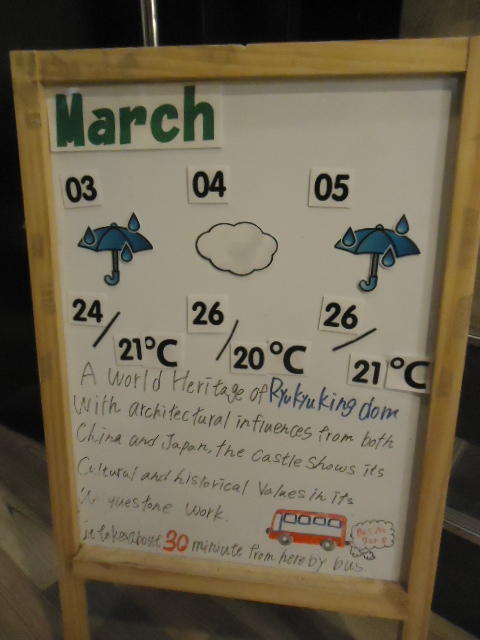 March
03 04 05
24/21°C 26/20°C 26/21°C
A World Heritage of Ryukyu kingdom
With architectural influences from both
China and Japan, the Castle shows its
Cultural and historical values in its
stone work.
it takes about 30 miniute from here by bus.